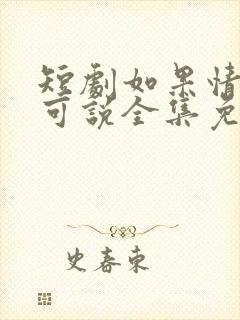 短劇如果情
可說全集免
史春東